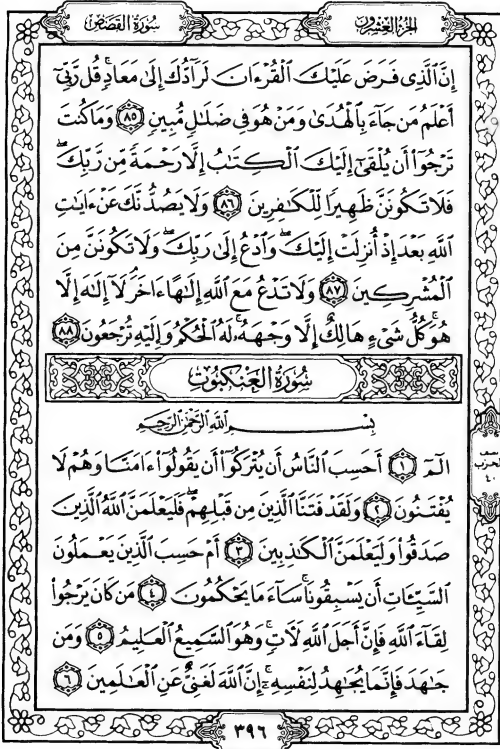 سُورَةُ القَصَصِ
الجُزْءُ العِشْرُونَ
إِنَّ ٱلَّذِى فَرَضَ عَلَيْكَ ٱلْقُرْءَانَ لَرَآدُّكَ إِلَىٰ مَعَادٍ ۚ قُل رَّبِّىٓ
أَعْلَمُ مَن جَآءَ بِٱلْهُدَىٰ وَمَنْ هُوَ فِى ضَلَٰلٍ مُّبِينٍ ٨٥ وَمَا كُنتَ
تَرْجُوٓا۟ أَن يُلْقَىٰٓ إِلَيْكَ ٱلْكِتَٰبُ إِلَّا رَحْمَةً مِّن رَّبِّكَ ۖ
فَلَا تَكُونَنَّ ظَهِيرًا لِّلْكَٰفِرِينَ ٨٦ وَلَا يَصُدُّنَّكَ عَنْ ءَايَٰتِ
ٱللَّهِ بَعْدَ إِذْ أُنزِلَتْ إِلَيْكَ ۖ وَٱدْعُ إِلَىٰ رَبِّكَ ۖ وَلَا تَكُونَنَّ مِنَ
ٱلْمُشْرِكِينَ ٨٧ وَلَا تَدْعُ مَعَ ٱللَّهِ إِلَٰهًا ءَاخَرَ ۘ لَآ إِلَٰهَ إِلَّا
هُوَ ۚ كُلُّ شَىْءٍ هَالِكٌ إِلَّا وَجْهَهُۥ ۚ لَهُ ٱلْحُكْمُ وَإِلَيْهِ تُرْجَعُونَ ٨٨
سُورَةُ العَنكَبُوتِ
بِسْمِ ٱللَّهِ ٱلرَّحْمَٰنِ ٱلرَّحِيمِ
الٓمٓ ١ أَحَسِبَ ٱلنَّاسُ أَن يُتْرَكُوٓا۟ أَن يَقُولُوٓا۟ ءَامَنَّا وَهُمْ لَا
يُفْتَنُونَ ٢ وَلَقَدْ فَتَنَّا ٱلَّذِينَ مِن قَبْلِهِمْ ۖ فَلَيَعْلَمَنَّ ٱللَّهُ ٱلَّذِينَ
صَدَقُوا۟ وَلَيَعْلَمَنَّ ٱلْكَٰذِبِينَ ٣ أَمْ حَسِبَ ٱلَّذِينَ يَعْمَلُونَ
ٱلسَّيِّـَٔاتِ أَن يَسْبِقُونَا ۚ سَآءَ مَا يَحْكُمُونَ ٤ مَن كَانَ يَرْجُوا۟
لِقَآءَ ٱللَّهِ فَإِنَّ أَجَلَ ٱللَّهِ لَءَاتٍ ۚ وَهُوَ ٱلسَّمِيعُ ٱلْعَلِيمُ ٥ وَمَن
جَٰهَدَ فَإِنَّمَا يُجَٰهِدُ لِنَفْسِهِۦٓ ۚ إِنَّ ٱللَّهَ لَغَنِىٌّ عَنِ ٱلْعَٰلَمِينَ ٦
نصف
الحزب
٤٠
٣٩٦